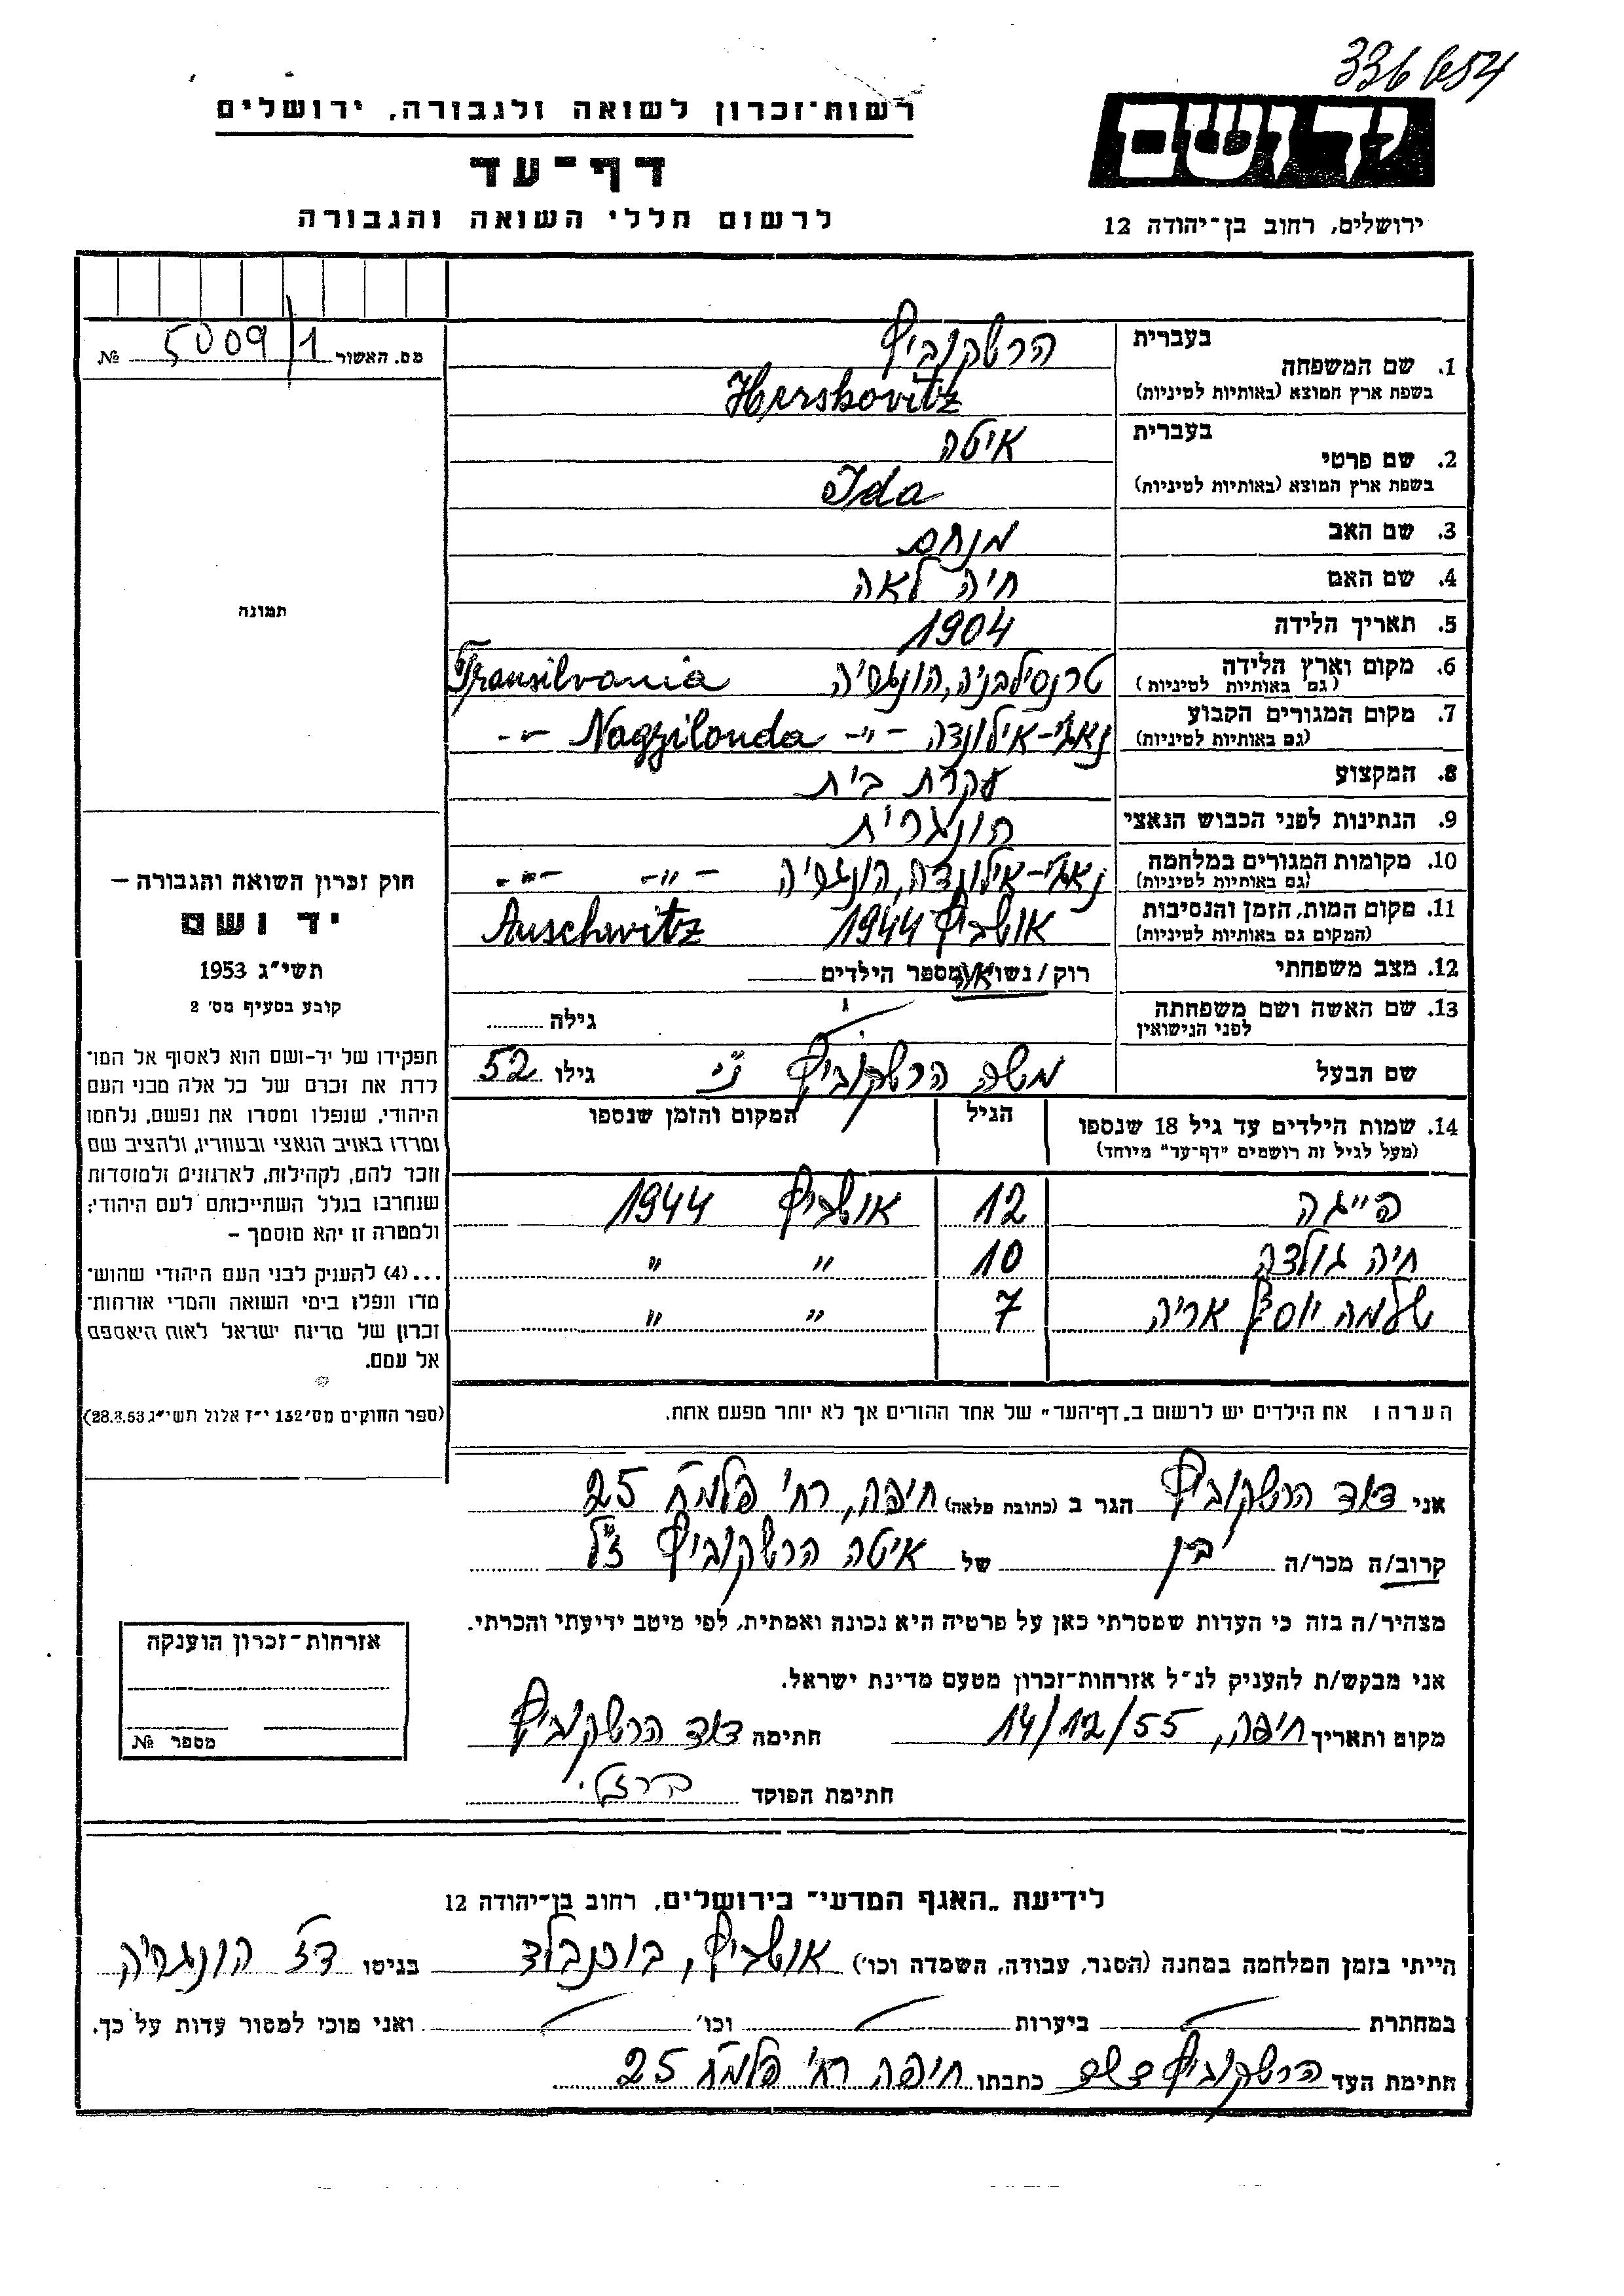 רשות־זכרון לשואה ולגבורה, ירושלים
דף־עד
לרשום חללי השואה והגבורה
יד ושם
ירושלים, רחוב בן־יהודה 12
מס. האשור 5009/1 №
תמונה
חוק זכרון השואה והגבורה –
יד ושם
תשי״ג 1953
קובע בסעיף מס׳ 2
תפקידו של יד־ושם הוא לאסוף אל המו־
לדת את זכרם של כל אלה מבני העם
היהודי, שנפלו ומסרו את נפשם, נלחמו
ומרדו באויב הנאצי ובעוזריו, ולהציב שם
וזכר להם, לקהילות, לארגונים ולמוסדות
שנחרבו בגלל השתייכותם לעם היהודי;
ולמטרה זו יהא מוסמך –
...(4) להעניק לבני העם היהודי שהוש־
מדו ונפלו בימי השואה והמרי אזרחות־
זכרון של מדינת ישראל לאות היאספם
אל עמם.
(ספר החוקים מס׳ 132 י״ז אלול תשי״ג 28.8.53)
בעברית הרשקוביץ
1. שם המשפחה
בשפת ארץ המוצא (באותיות לטיניות) Herskovitz
בעברית איטה
2. שם פרטי
בשפת ארץ המוצא (באותיות לטיניות) Ida
3. שם האב מנחם
4. שם האם חיה לאה
5. תאריך הלידה 1904
6. מקום וארץ הלידה טרנסילבניה, הונגריה Transilvania
(גם באותיות לטיניות)
7. מקום המגורים הקבוע נאג׳י-אילונדה -"- Nagyilonda -"-
(גם באותיות לטיניות)
8. המקצוע עקרת בית
9. הנתינות לפני הכבוש הנאצי הונגרית
10. מקומות המגורים במלחמה נאג׳י-אילונדה, הונגריה -"- -"-
(גם באותיות לטיניות)
11. מקום המות, הזמן והנסיבות אושביץ 1944 Auschwitz
(המקום גם באותיות לטיניות)
12. מצב משפחתי רוק/נשואה מספר הילדים
13. שם האשה ושם משפחתה
לפני הנישואין גילה
שם הבעל משה הרשקוביץ ני׳ גילו 52
14. שמות הילדים עד גיל 18 שנספו הגיל המקום והזמן שנספו
(מעל לגיל זה רושמים "דף־עד" מיוחד)
פייגה 12 אושביץ 1944
חיה גולדה 10 " "
שלמה יוסף אריה 7 " "
הערה: את הילדים יש לרשום ב„דף־העד״ של אחד ההורים אך לא יותר מפעם אחת.
אני דוד הרשקוביץ הגר ב (כתובת מלאה) חיפה, רח׳ פלמ״ח 25
קרוב/ה מכר/ה בן של איטה הרשקוביץ ז״ל
מצהיר/ה בזה כי העדות שמסרתי כאן על פרטיה היא נכונה ואמתית, לפי מיטב ידיעתי והכרתי.
אני מבקש/ת להעניק לנ״ל אזרחות־זכרון מטעם מדינת ישראל.
מקום ותאריך חיפה, 14/12/55 חתימה דוד הרשקוביץ
חתימת הפוקד
אזרחות־זכרון הוענקה
מספר №
לידיעת „האגף המדעי״ בירושלים, רחוב בן־יהודה 12
הייתי בזמן המלחמה במחנה (הסגר, עבודה, השמדה וכו׳) אושביץ, בוכנבלד בגיטו דז׳ הונגריה
במחתרת ביערות וכו׳ ואני מוכן למסור עדות על כך.
חתימת העד הרשקוביץ דוד כתבתו חיפה רח׳ פלמ״ח 25